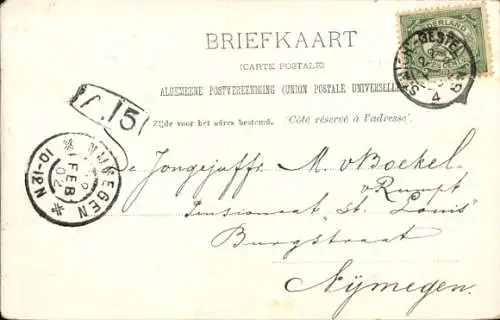 BRIEFKAART
(CARTE POSTALE)
ALGEMEENE POSTVEREENIGING (UNION POSTALE UNIVERSELLE)
Zijde voor het adres bestemd. (Côté réservé à l'adresse)
NEDERLAND
4
15
NIJMEGEN
FEB
02
N 10-12
de Jongejuffr. M. v Boekel
v Rumpt
Pensionaat "St. Louis"
Burgstraat
Nijmegen.